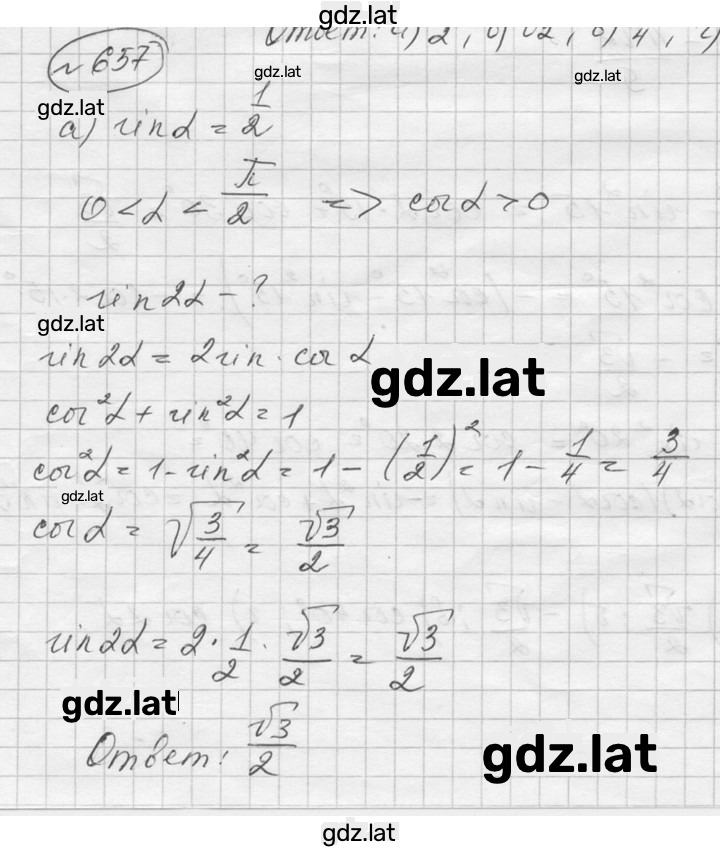 gdz.lat
Ответ: а) 2, б) √2, в) 4, г)
№ 657
gdz.lat
gdz.lat
gdz.lat
а) sin α = 1/2
0 < α < π/2 => cos α > 0
sin 2α - ?
gdz.lat
sin 2α = 2 sin · cos α
gdz.lat
cos²α + sin²α = 1
cos²α = 1 - sin²α = 1 - (1/2)² = 1 - 1/4 = 3/4
gdz.lat
cos α = √3/4 = √3/2
sin 2α = 2 · 1/2 · √3/2 = √3/2
gdz.lat
Ответ: √3/2
gdz.lat
gdz.lat